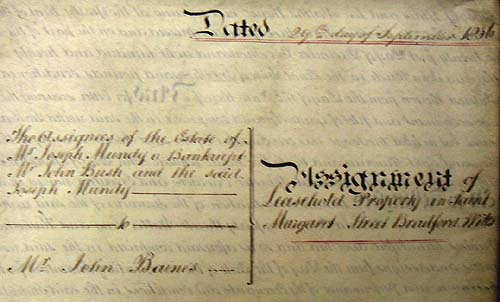 Dated 29th day of September 1836
The Assignees of the Estate of
Mr Joseph Mundy a Bankrupt
Mr John Bush and the said
Joseph Mundy
to
Mr John Baines
Assignment of
Leasehold Property in Saint
Margaret Street Bradford Wilts